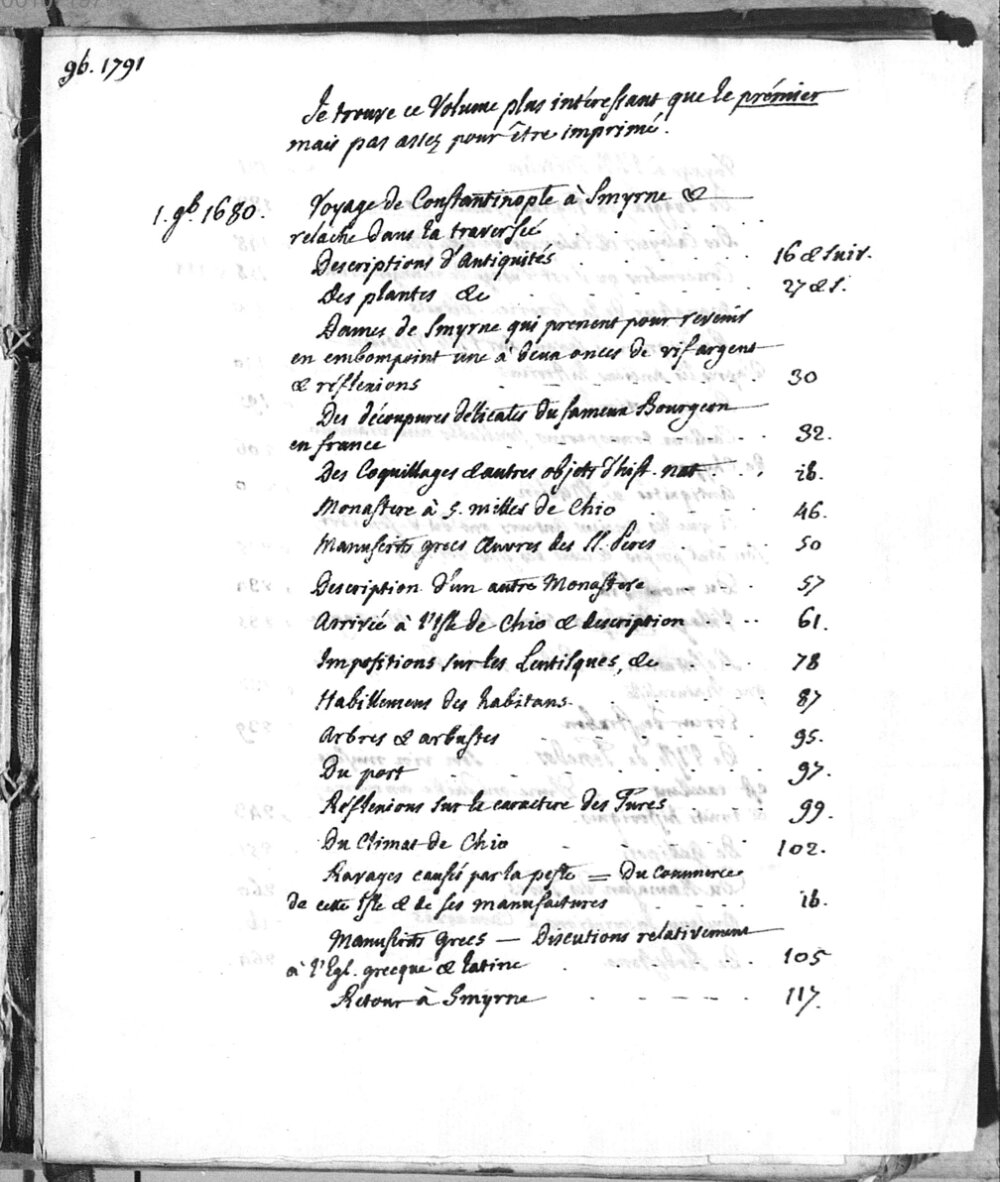 9b. 1791
Je trouve ce Volume plus intéressant que le prémier
mais pas assez pour être imprimé.
1. 9b. 1680. Voyage de Constantinople à Smyrne &
relache dans la traversée
Descriptions d'Antiquités 16 & suiv.
Des plantes &c 27 & s.
Dames de Smyrne qui prenent pour revenir
en embompoint une à deux onces de vif argent
& réflexions 30
Des découpures délicates du fameux Bourgeon
en france 32.
Des Coquillages & autres objets d'hist. nat. ib.
Monastere à 5. milles de Chio 46.
Manuscrits grecs Œuvres des SS. Peres 50
Description d'un autre Monastere 57
Arrivée à l'Isle de Chio & description 61.
Impositions sur les Lentisques, &c 78
Habillemens des habitans. 87
Arbres & arbustes 95.
Du port 97.
Réflexions sur le caractere des Turcs 99.
Du Climat de Chio 102.
Ravages causés par la peste = Du Commerce
de cette Isle & de ses manufactures ib.
Manuscrits Grecs — Discutions relativement
à l'Egl. grecque & latine 105
Retour à Smyrne 117.